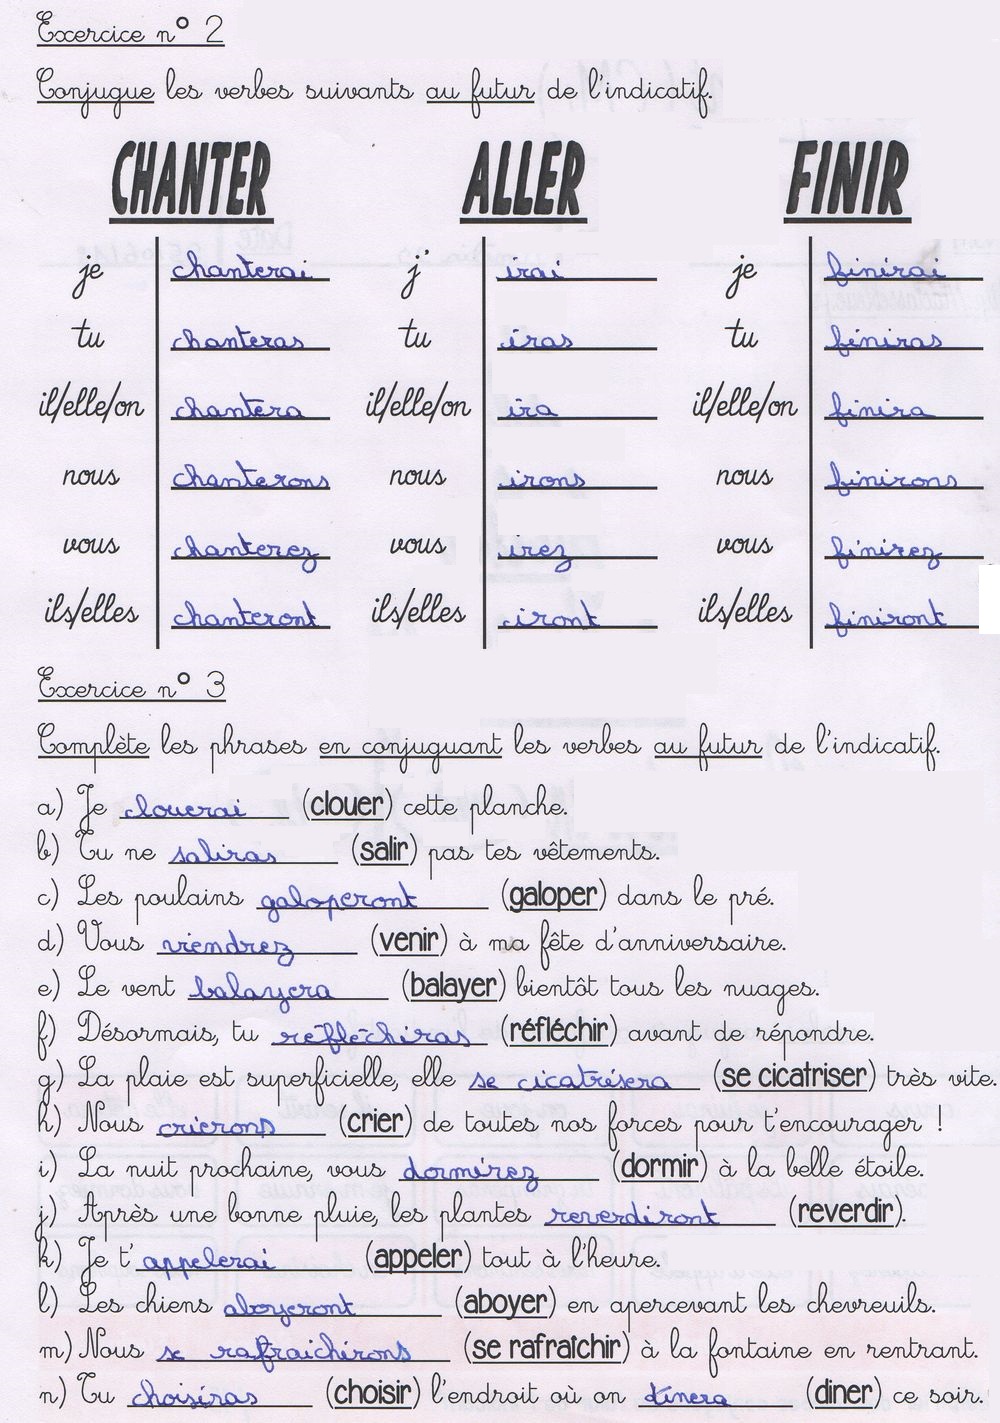 Exercice n° 2
Conjugue les verbes suivants au futur de l'indicatif.
CHANTER ALLER FINIR
je chanterai j' irai je finirai
tu chanteras tu iras tu finiras
il/elle/on chantera il/elle/on ira il/elle/on finira
nous chanterons nous irons nous finirons
vous chanterez vous irez vous finirez
ils/elles chanteront ils/elles iront ils/elles finiront
Exercice n° 3
Complète les phrases en conjuguant les verbes au futur de l'indicatif.
a) Je clouerai (clouer) cette planche.
b) Tu ne saliras (salir) pas tes vêtements.
c) Les poulains galoperont (galoper) dans le pré.
d) Vous viendrez (venir) à ma fête d'anniversaire.
e) Le vent balayera (balayer) bientôt tous les nuages.
f) Désormais, tu réfléchiras (réfléchir) avant de répondre.
g) La plaie est superficielle, elle se cicatrisera (se cicatriser) très vite.
h) Nous crierons (crier) de toutes nos forces pour t'encourager !
i) La nuit prochaine, vous dormirez (dormir) à la belle étoile.
j) Après une bonne pluie, les plantes reverdiront (reverdir).
k) Je t'appelerai (appeler) tout à l'heure.
l) Les chiens aboyeront (aboyer) en apercevant les chevreuils.
m) Nous se rafraichirons (se rafraîchir) à la fontaine en rentrant.
n) Tu choisiras (choisir) l'endroit où on dinera (diner) ce soir.